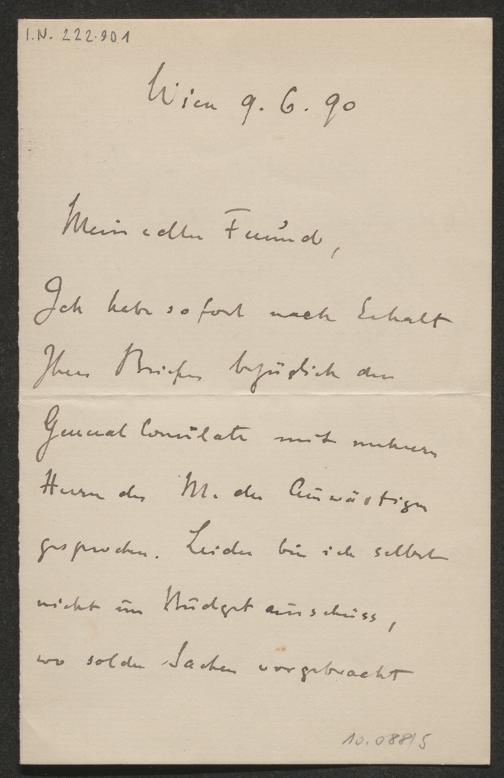 I.N. 222.901
Wien 9. 6. 90
Mein edler Freund,
Ich habe sofort nach Erhalt
Ihres Briefes bezüglich der
General Consulate mit mehrern
Herrn des M. des Auswärtigen
gesprochen. Leider bin ich selbst
nicht im Budgetausschuss,
wo solche Sachen vorgebracht
10.088/5